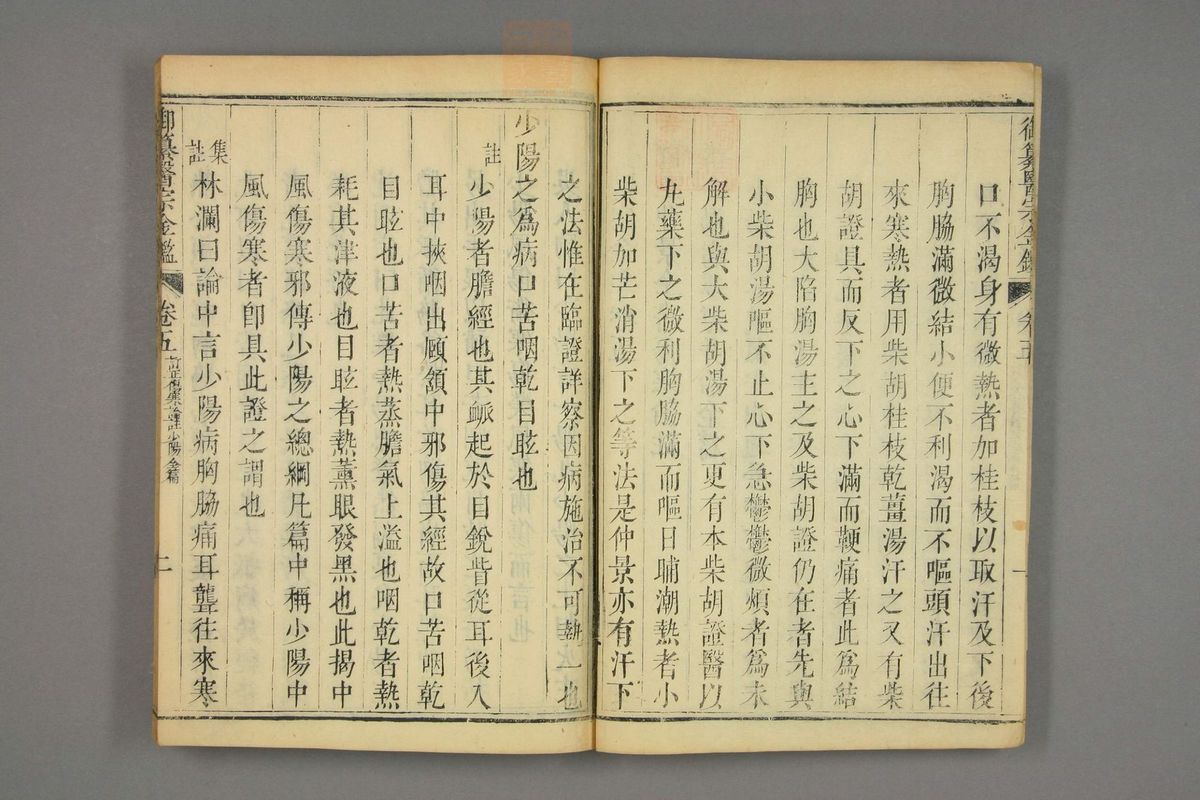 御纂醫宗金鑑 卷五
口不渴身有微熱者加桂枝以取汗及下後
胸脇滿微結小便不利渴而不嘔頭汗出往
來寒熱者用柴胡桂枝乾薑湯汗之又有柴
胡證具而反下之心下滿而鞕痛者此為結
胸也大陷胸湯主之及柴胡證仍在者先與
小柴胡湯嘔不止心下急鬱鬱微煩者為未
解也與大柴胡湯下之更有本柴胡證醫以
丸藥下之微利胸脇滿而嘔日晡潮熱者小
柴胡加芒消湯下之等法是仲景亦有汗下
之法惟在臨證詳察因病施治不可執一也
少陽之為病口苦咽乾目眩也
註 少陽者膽經也其脈起於目銳眥從耳後入
耳中挾咽出頤頷中邪傷其經故口苦咽乾
目眩也口苦者熱蒸膽氣上溢也咽乾者熱
耗其津液也目眩者熱薰眼發黑也此揭中
風傷寒邪傳少陽之總綱凡篇中稱少陽中
風傷寒者卽具此證之謂也
集註 林瀾曰論中言少陽病胸脇痛耳聾往來寒
御纂醫宗金鑑 卷五 訂正傷寒論註少陽全篇 二